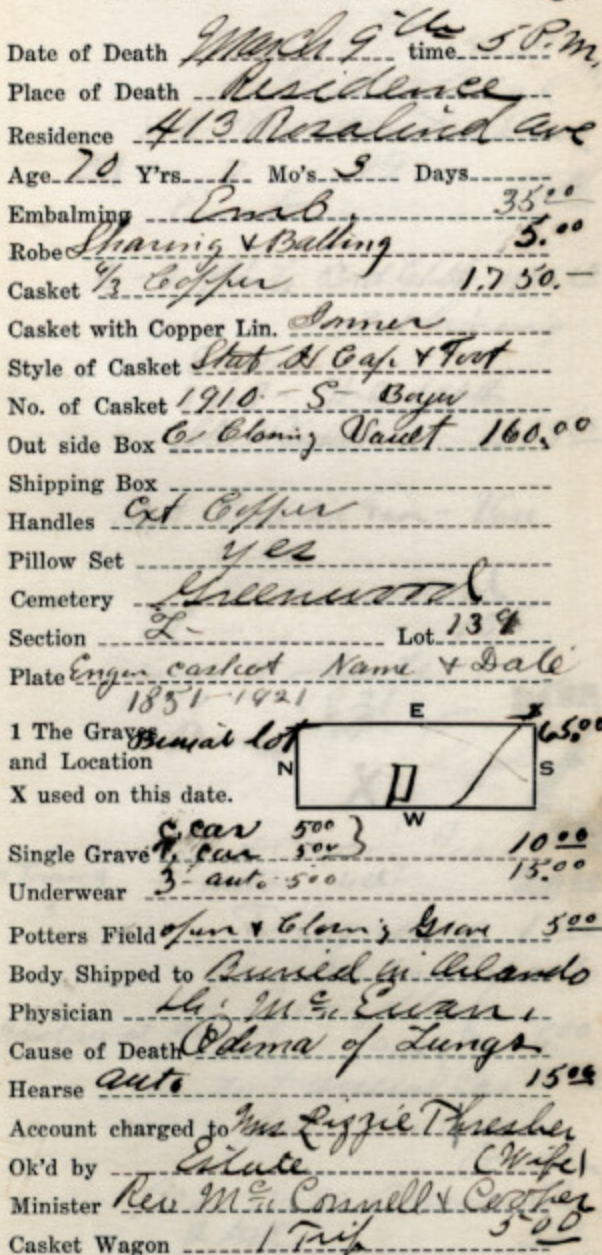 Date of Death March 9th time 5 P.M.
Place of Death Residence
Residence 413 Rosalind ave
Age 70 Y'rs 1 Mo's 3 Days
Embalming Emb. 35.00
Robe Shaving & Bathing 5.00
Casket 6/3 Copper 1.750.—
Casket with Copper Lin. Inner
Style of Casket Cap & Foot
No. of Casket 1910 - S - Boyer
Out side Box C Closing Vault 160.00
Shipping Box
Handles Ext Copper
Pillow Set yes
Cemetery Greenwood
Section L - Lot 139
Plate Engrv casket Name & Date
1851-1921
E X
1 The Graves Burial lot 65.00
and Location N S
X used on this date.
W
C. car 500 }
Single Grave P. car 500 10.00
Underwear 3 - auto 500 15.00
Potters Field open & Closing Grave 500
Body Shipped to Buried in Orlando
Physician Dr. McEwan.
Cause of Death Odema of Lungs
Hearse auto 15.00
Account charged to Mrs Lizzie Thresher
Ok'd by Estate (Wife)
Minister Rev McConnell & Cooper
Casket Wagon 1 Trip 5.00